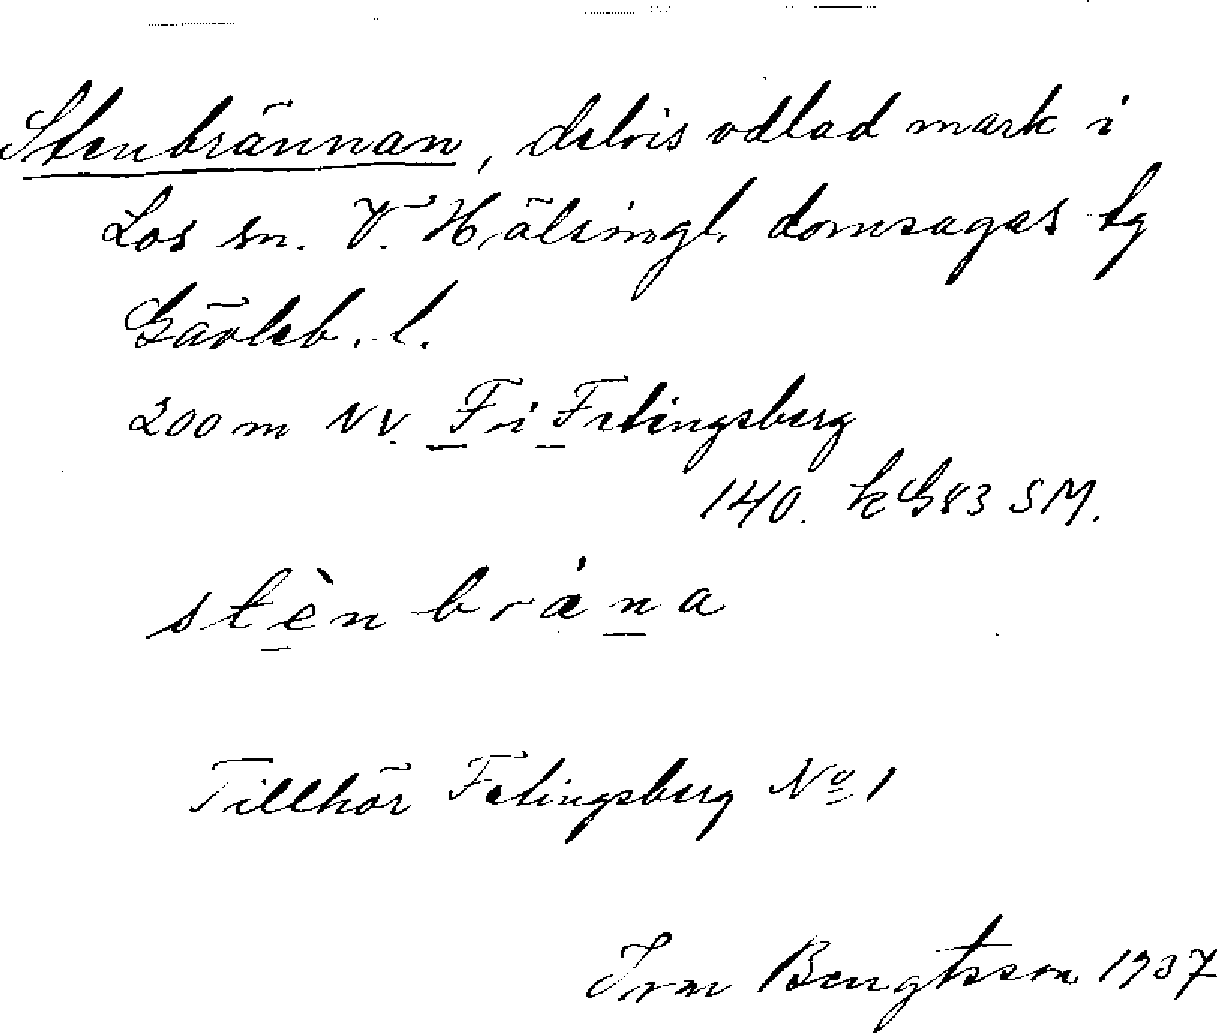 Stenbrännan, delvis odlad mark i
Los sn. V. Hälsingl. domsagas tg
Gävleb. l.
200 m NV. F i Fetingsberg
140. k G83 SM.
stèn bràna
Tillhör Fetingsberg No 1
Ivar Bengtsson 1937